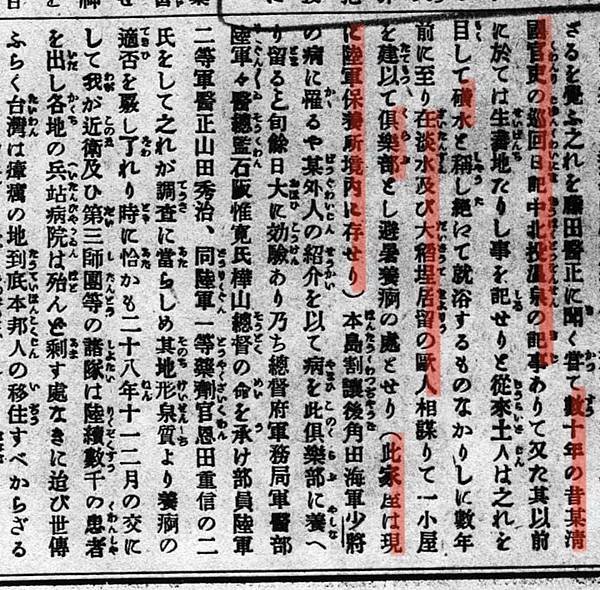 ざるを覺ふ之れを藤田醫正に聞く甞て數十年の昔某淸
國官吏の巡回日記中北投温泉の記事ありて又た其以前
に於ては生蕃地たりし事を記せりと從來土人は之れを
目して磺水と稱し絕ゐて就浴するものなかりしに數年
前に至り在淡水及び大稻埕居留の歐人相謀りて一小屋
を建以て俱樂部とし避暑養痾の處とせり(此家屋は現
に陸軍保養所境內に存せり)本島割讓後角田海軍少將
の病に罹るや某外人の紹介を以て病を此俱樂部に養へ
り留ると旬餘日大に効驗あり乃ち總督府軍務局軍醫部
陸軍々醫總監石阪惟寬氏樺山總督の命を承け部員陸軍
二等軍醫正山田秀治、同陸軍一等藥劑官恩田重信の二
氏をして之れが調査に當らしめ其地形泉質より養痾の
適否を覈し了れり時に恰かも二十八年十一二月の交に
して我が近衛及ひ第三師團等の諸隊は陸續數千の患者
を出し各地の兵站病院は殆んど剩す處なきに迨び世傳
ふらく台灣は瘴癘の地到底本邦人の移住すべからざる